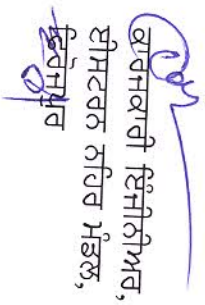 ਕਾਰਜਕਾਰੀ ਇੰਜੀਨੀਅਰ,
ਈਸਟਰਨ ਨਹਿਰ ਮੰਡਲ,
ਫਿਰੋਜ਼ਪੁਰ